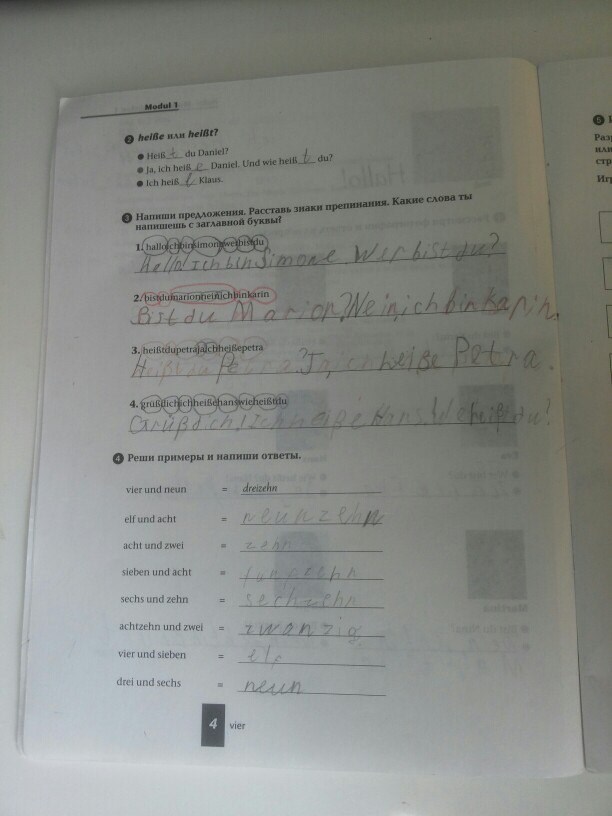 Modul 1
2 heiße или heißt?
● Heiß t du Daniel?
● Ja, ich heiß e Daniel. Und wie heiß t du?
● Ich heiß Klaus.
3 Напиши предложения. Расставь знаки препинания. Какие слова ты
напишешь с заглавной буквы?
1. halloichbinsimonewerbistdu
Hallo ich bin Simone. Wer bist du?
2. bistdumarionneinichbinkarin
Bist du Marion? Nein, ich bin karin.
3. heißtdupetrajaichheißepetra
Heißt du Petra? Ja, ich heiße Petra.
4. grüßdichichheißehanswieheißtdu
Grüß dich Ich heiße Hans. Wie heißt du?
4 Реши примеры и напиши ответы.
vier und neun = dreizehn
elf und acht = neunzehn
acht und zwei = zehn
sieben und acht = funfzehn
sechs und zehn = sechzehn
achtzehn und zwei = zwanzig
vier und sieben = elf
drei und sechs = neun
4 vier
5
Раз
или
стр
Игр